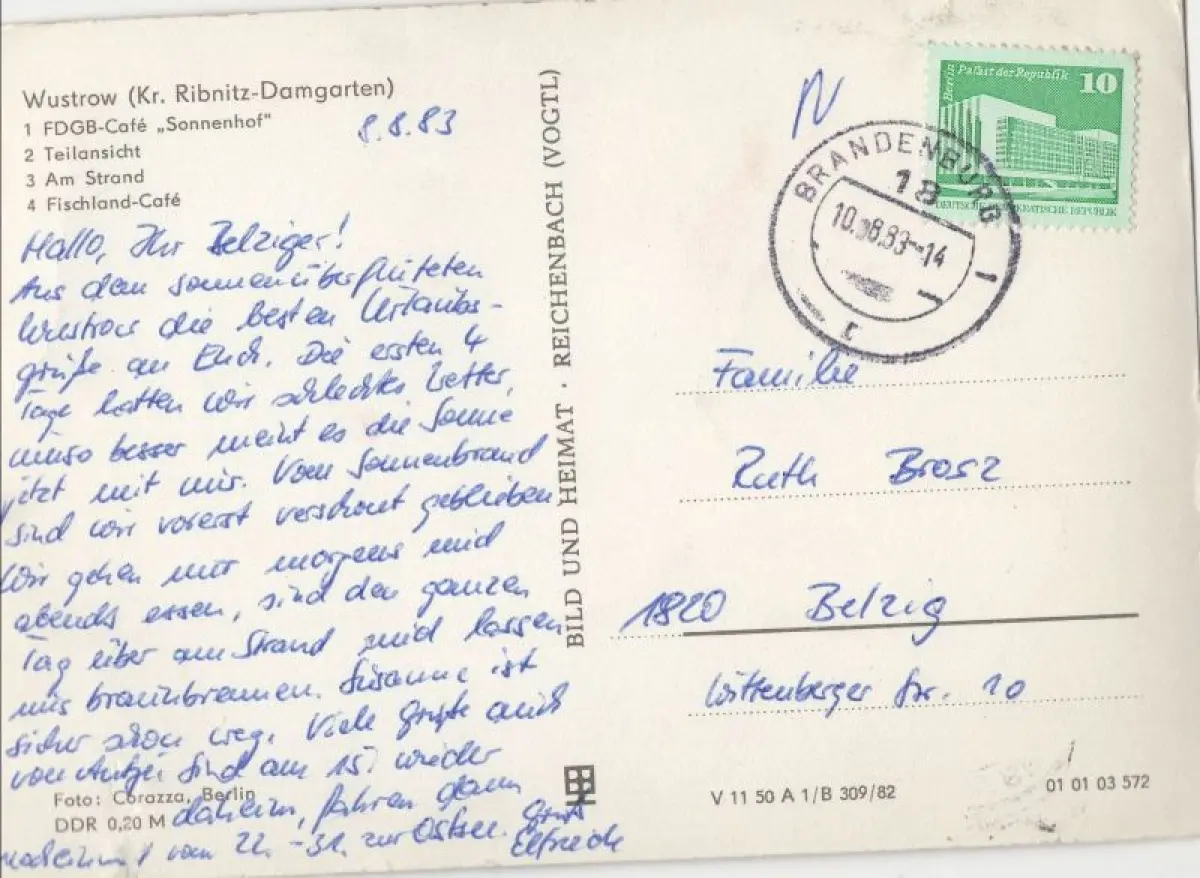 Wustrow (Kr. Ribnitz-Damgarten)
1 FDGB-Café „Sonnenhof"
2 Teilansicht
3 Am Strand
4 Fischland-Café
8.8.83
Hallo, Ihr Belziger!
Aus dem sonnenüberfluteten
Wustrow die besten Urlaubs-
grüße an Euch. Die ersten 4
Tage hatten wir schlechtes Wetter,
umso besser meint es die Sonne
jetzt mit uns. Vom Sonnenbrand
sind wir vorerst verschont geblieben
Wir gehen nur morgens und
abends essen, sind den ganzen
Tag über am Strand und lassen
uns braunbrennen. Susanne ist
sicher schon weg. Viele Grüße auch
von Sind am 15. wieder
daheim, fahren dann
nocheinmal vom 22. -31. zur Ostsee.
Gruß
Elfriede
Foto: Corazza, Berlin
DDR 0,20 M
BILD UND HEIMAT · REICHENBACH (VOGTL)
Berlin
Palast der Republik
10
DEUTSCHE DEMOKRATISCHE REPUBLIK
BRANDENBURG 1
18
10.08.83-14
r
Familie
Ruth Brosz
1820 Belzig
Wittenberger Str. 10
V 11 50 A 1/B 309/82
01 01 03 572